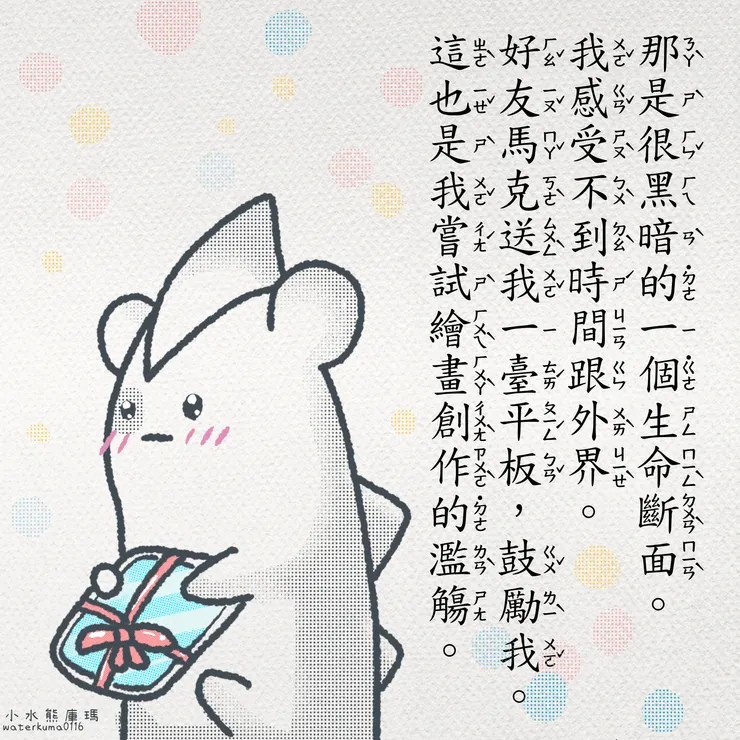 那是很黑暗的一個生命斷面。
我感受不到時間跟外界。
好友馬克送我一臺平板，鼓勵我。
這也是我嘗試繪畫創作的濫觴。
小水熊庫瑪
waterkuma0116